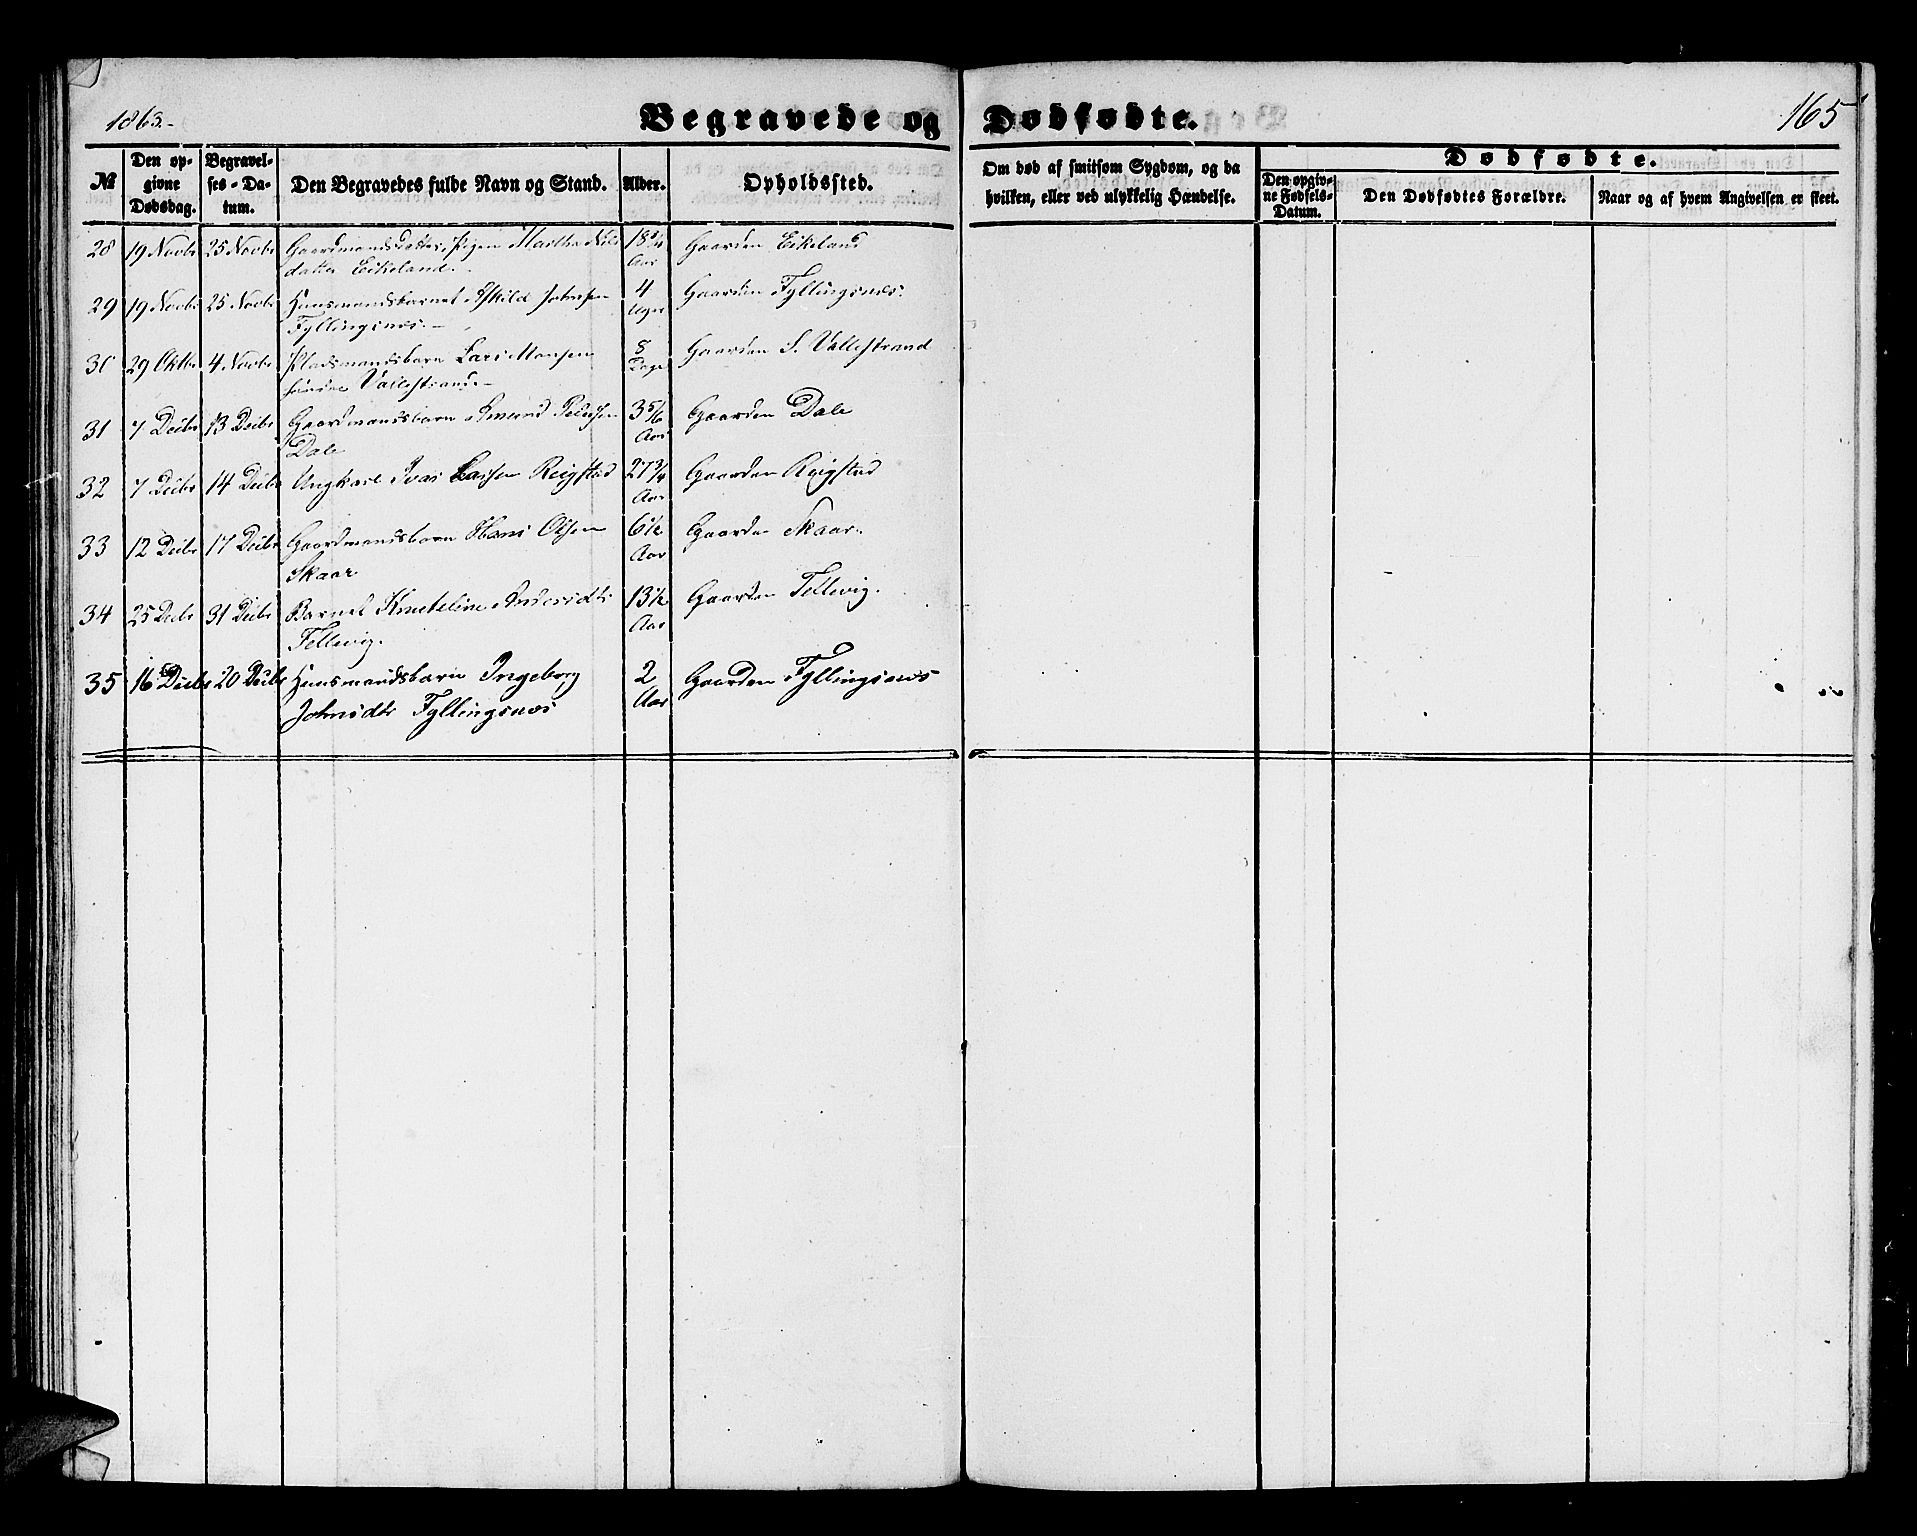 1863.-
Begravede og Dødfødte.
165
№
Den opgivne Dødsdag.
Begravelses-Datum.
Den Begravedes fulde Navn og Stand.
Alder.
Opholdssted.
Om død af smitsom Sygdom, og da hvilken, eller ved ulykkelig Hændelse.
Dødfødte.
Den opgivne Fødsels-Datum.
Den Dødfødtes Forældre.
Naar og af hvem Angivelsen er skeet.
28 19 Novbr 25 Novbr Gaardmandsdatter, Pigen Martha Nils 18 Gaarden Eikeland
datter Eikeland.- Aar
29 19 Novbr 25 Novbr Huusmandsbarnet Askild Johnsen 4 Gaarden Fyllingsnæs.
Fyllingsnæs.- Uger
30 29 Oktbr 4 Novbr Pladsmandsbarn Lars Monsen 8 Gaarden S. Vallestrand
Vallestrand.- Dage
31 7 Decbr 13 Decbr Gaardmandsbarn Amund Pedersen 3 5/6 Gaarden Dale
Dale Aar
32 7 Decbr 14 Decbr Ungkarl Ivar Larsen Reigstad 27 3/4 Gaarden Reigstad
Aar
33 12 Decbr 17 Decbr Gaardmandsbarn Hans Olsen 6 1/2 Gaarden Skaar.
Skaar Aar
34 25 Decbr 31 Decbr Barnet Knuteline Andersdtr 13 1/2 Gaarden Tellevig.
Tellevig. Aar
35 16 Decbr 20 Decbr Huusmandsbarn Ingeborg 2 Gaarden Fyllingsnæs
Johnsdtr Fyllingsnæs Aar